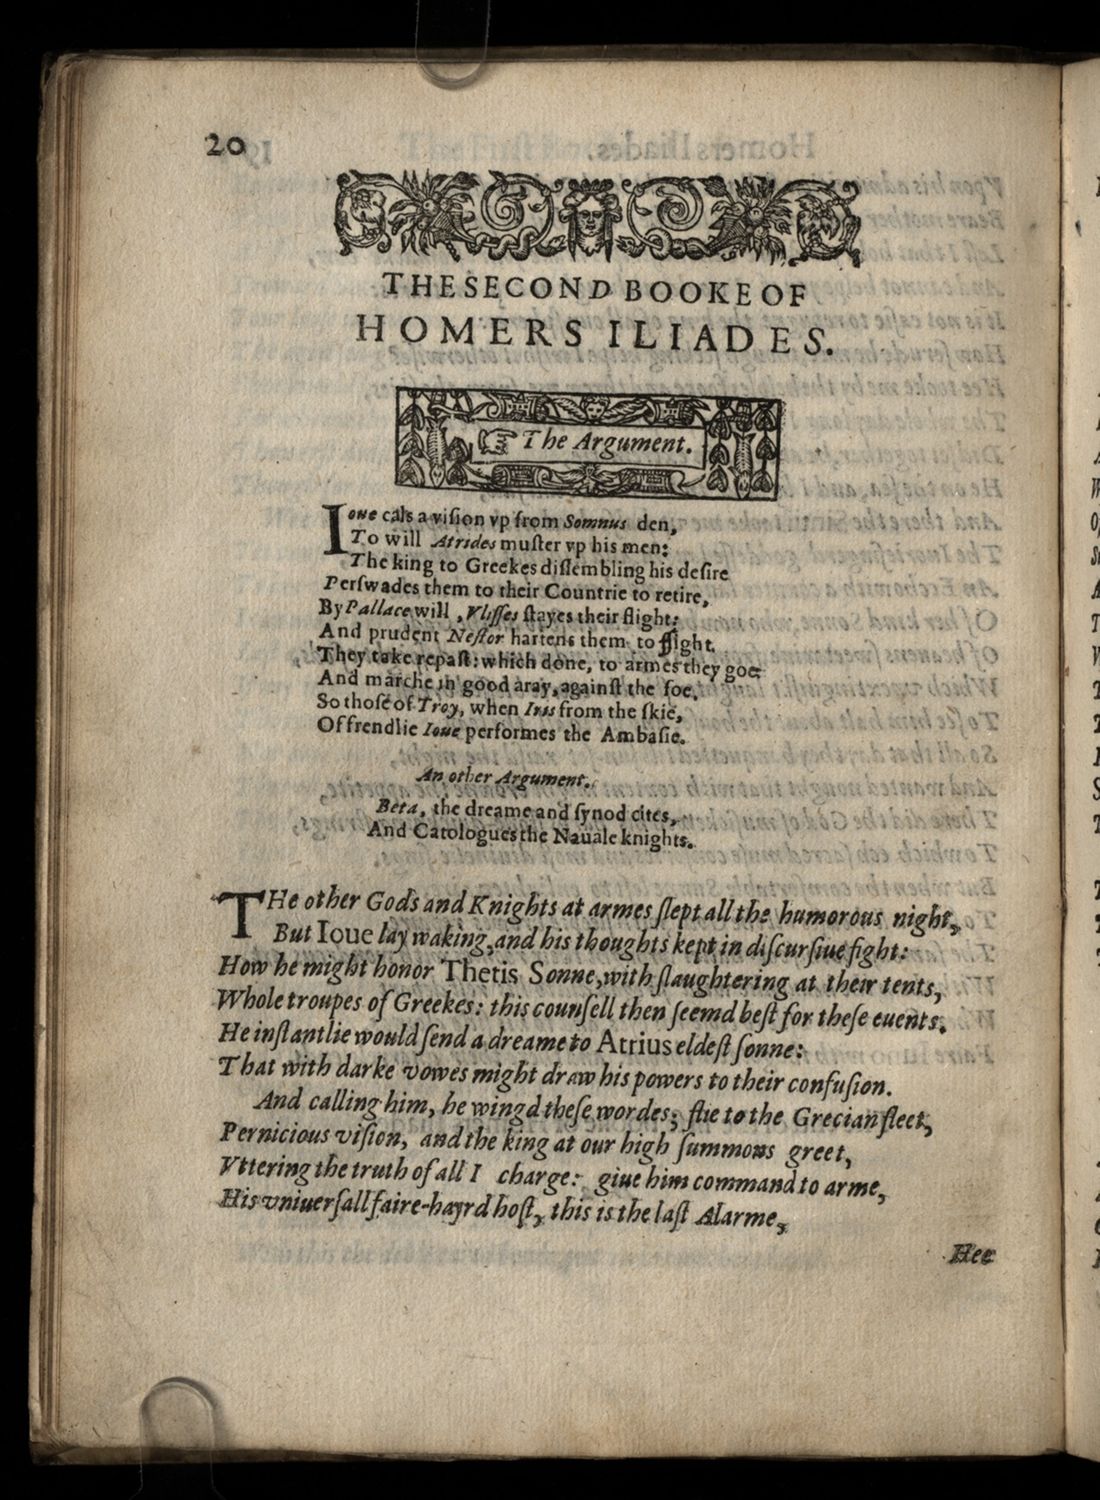 20
THE SECOND BOOKE OF
HOMERS ILIADES.
☞ The Argument.
Ioue cals a viſion vp from Somnus den,
To will Atrides muſter vp his men:
The king to Greekes diſſembling his deſire
Perſwades them to their Countrie to retire,
By Pallace will, Vliſſes ſtayes their flight:
And prudent Neſtor hartens them to ffight.
They take repaſt: which done, to armes they goe:
And marche in good aray, againſt the foe.
So thoſe of Troy, when Iris from the ſkie,
Of frendlie Ioue performes the Ambaſie.
An other Argument.
Beta, the dreame and ſynod cites,
And Catologues the Nauale knights.
THe other Gods and Knights at armes ſlept all the humorous night,
But Ioue lay waking, and his thoughts kept in diſcurſiue fight:
How he might honor Thetis Sonne, with ſlaughtering at their tents,
Whole troupes of Greekes: this counſell then ſeemd beſt for theſe euents.
He inſtantlie would ſend a dreame to Atrius eldeſt ſonne:
That with darke vowes might draw his powers to their confuſion.
And calling him, he wingd theſe wordes; flie to the Grecian fleet,
Pernicious viſion, and the king at our high ſummons greet,
Vttering the truth of all I charge: giue him command to arme,
His vniuerſall faire-hayrd hoſt, this is the laſt Alarme,
Hee